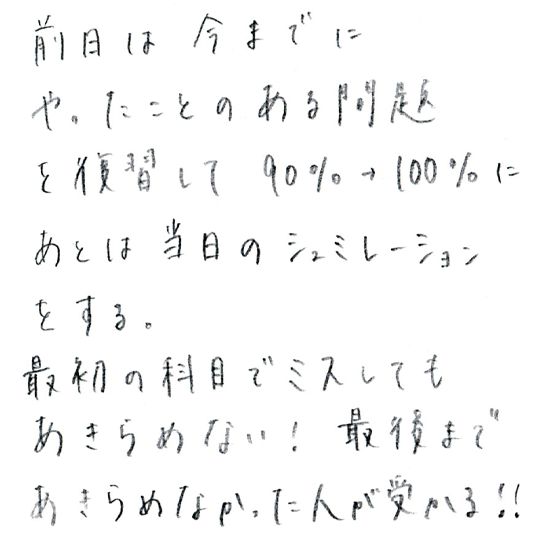 前日は 今までに
やったことのある問題
を復習して 90%→100%に
あとは当日のシュミレーション
をする。
最初の科目でミスしても
あきらめない! 最後まで
あきらめなかった人が受かる!!